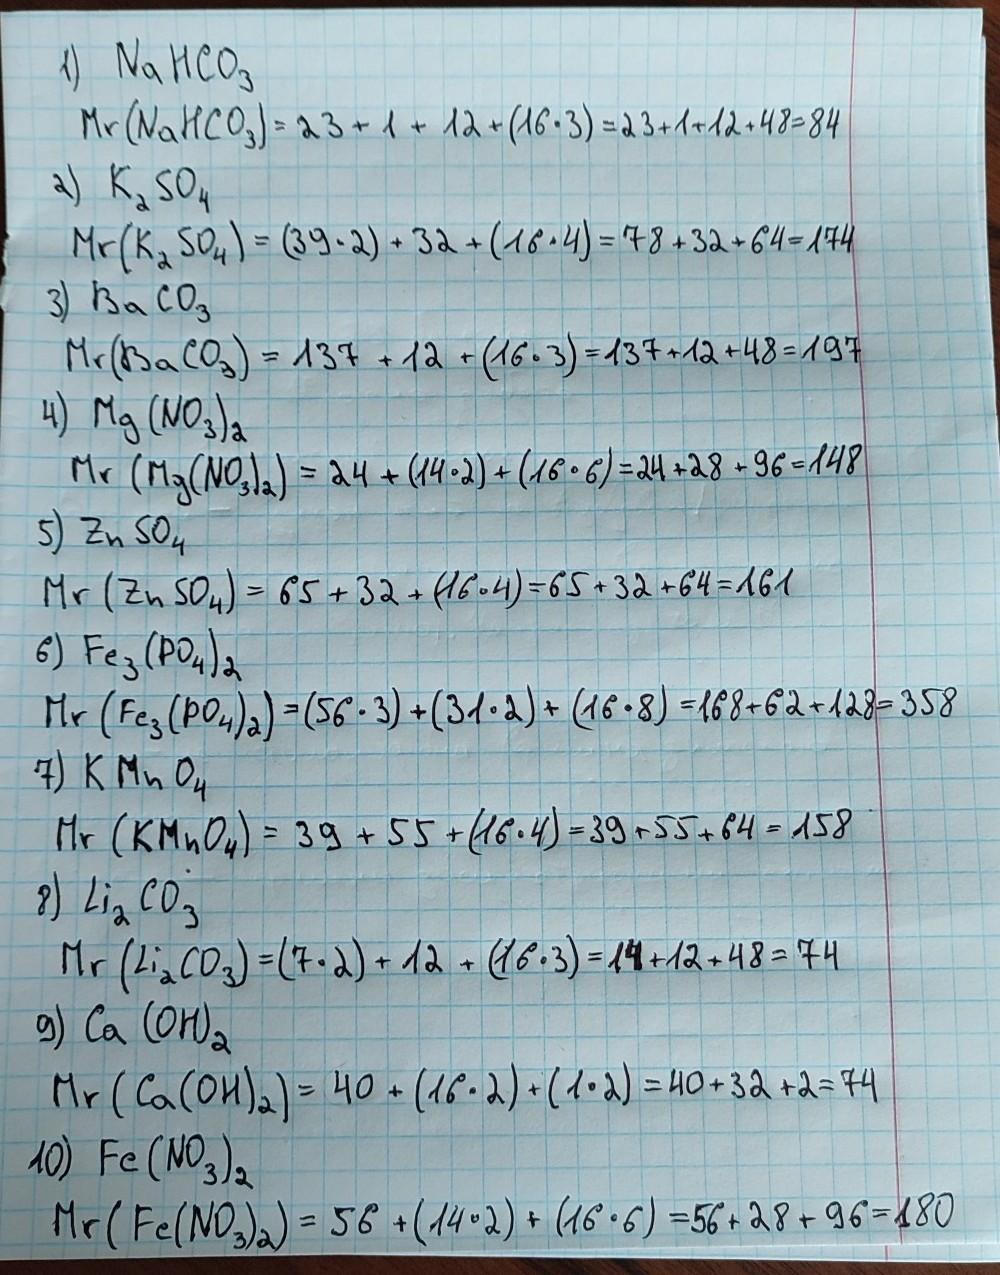 1) NaHCO₃
Mr(NaHCO₃) = 23 + 1 + 12 + (16·3) = 23+1+12+48=84
2) K₂SO₄
Mr(K₂SO₄) = (39·2) + 32 + (16·4) = 78+32+64=174
3) BaCO₃
Mr(BaCO₃) = 137 + 12 + (16·3) = 137+12+48=197
4) Mg(NO₃)₂
Mr(Mg(NO₃)₂) = 24 + (14·2) + (16·6) = 24+28+96=148
5) ZnSO₄
Mr(ZnSO₄) = 65 + 32 + (16·4) = 65+32+64=161
6) Fe₃(PO₄)₂
Mr(Fe₃(PO₄)₂) = (56·3) + (31·2) + (16·8) = 168+62+128=358
7) KMnO₄
Mr(KMnO₄) = 39 + 55 + (16·4) = 39+55+64 = 158
8) Li₂CO₃
Mr(Li₂CO₃) = (7·2) + 12 + (16·3) = 14+12+48=74
9) Ca(OH)₂
Mr(Ca(OH)₂) = 40 + (16·2) + (1·2) = 40+32+2=74
10) Fe(NO₃)₂
Mr(Fe(NO₃)₂) = 56 + (14·2) + (16·6) = 56+28+96=180